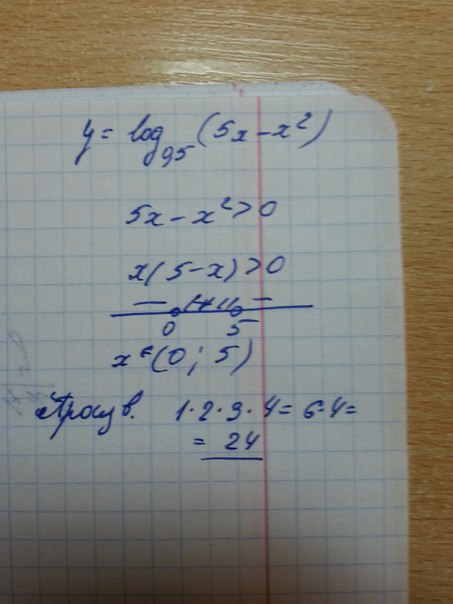 y = log₀,₅ (5x − x²)
5x − x² > 0
x(5 − x) > 0
− + −
0 5
x ∈ (0; 5)
Произв. 1·2·3·4 = 6·4 =
= 24